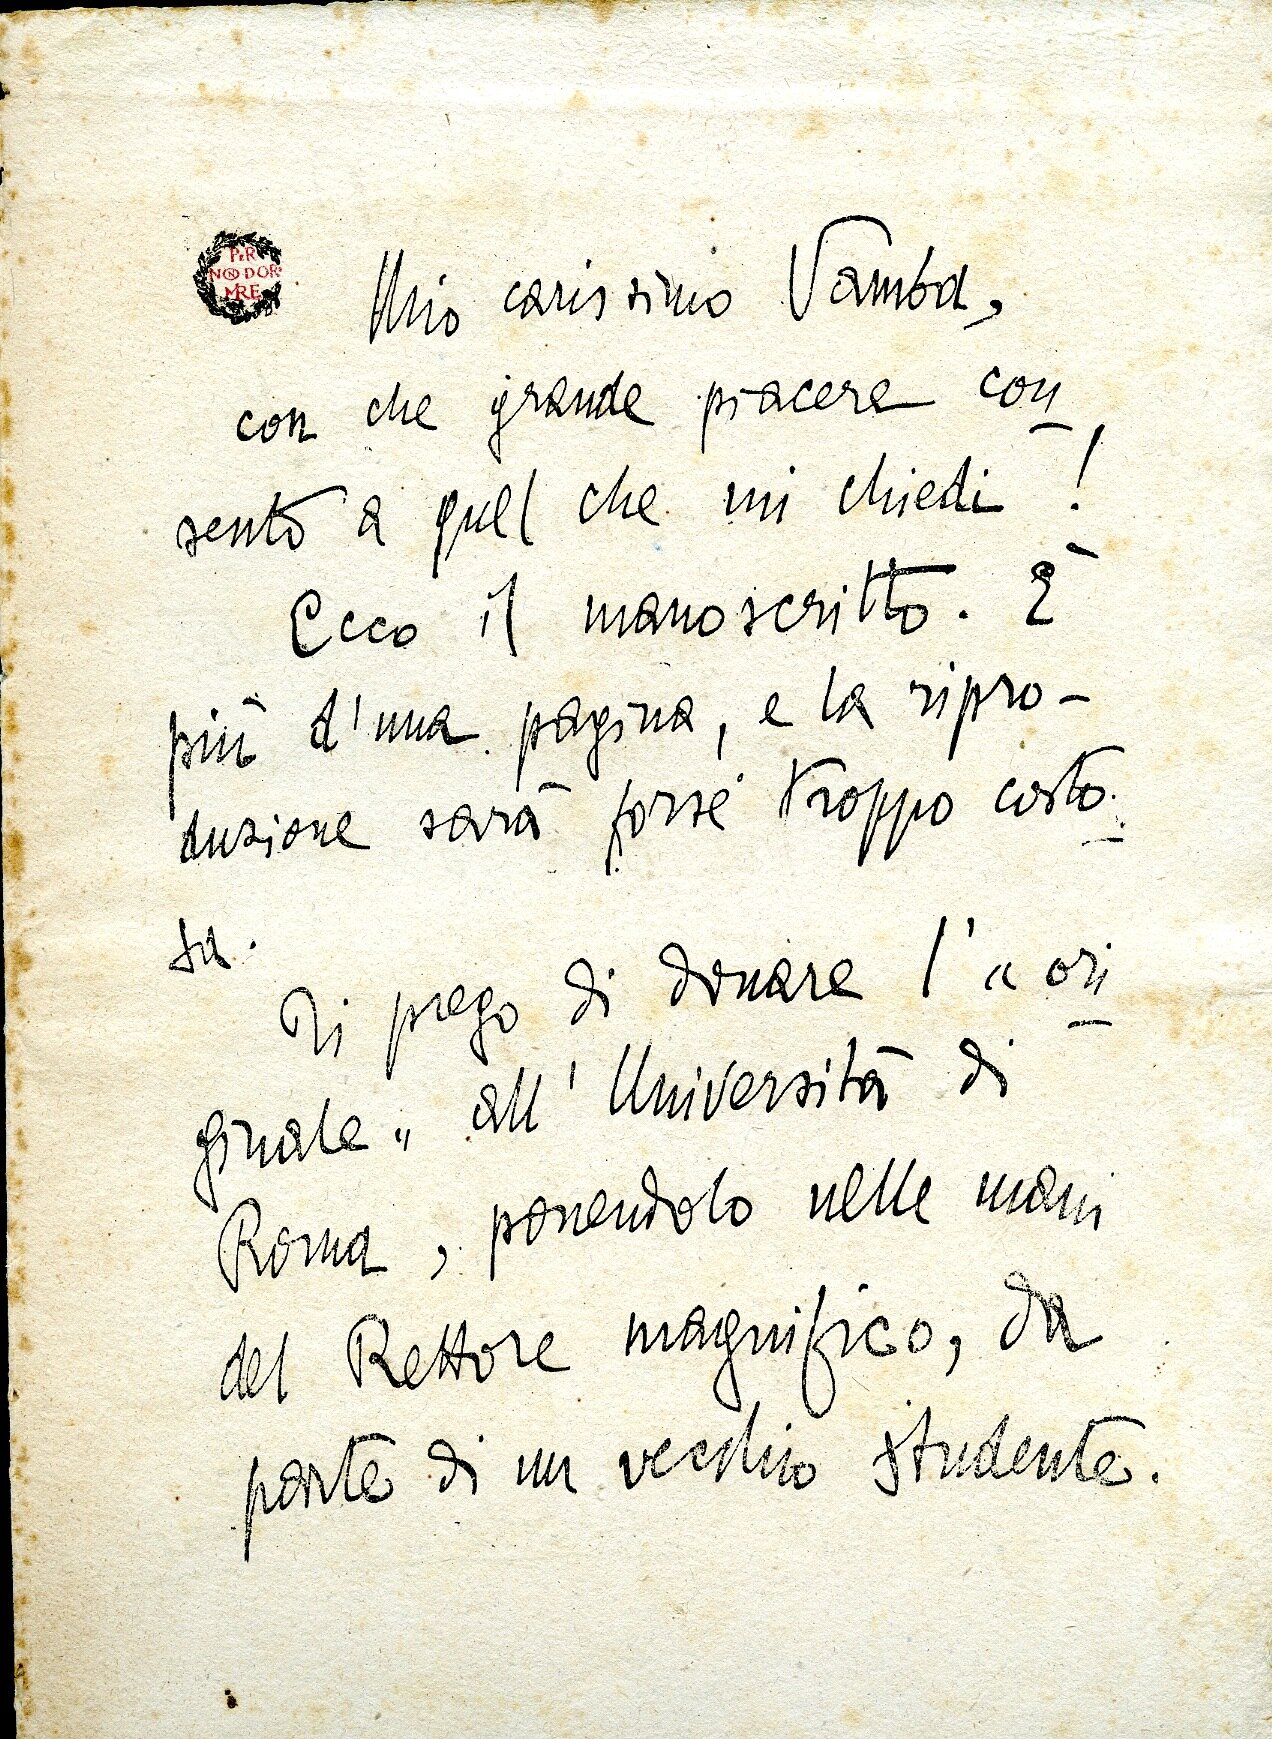 PER
NON DOR
MIRE
Mio carissimo Vamba,
con che grande piacere con
sento a quel che mi chiedi!
Ecco il manoscritto. È
più d'una pagina, e la ripro-
duzione sarà forse troppo costo
sa.
Ti prego di donare l'"ori
ginale" all'Università di
Roma, ponendolo nelle mani
del Rettore magnifico, da
parte di un vecchio studente.